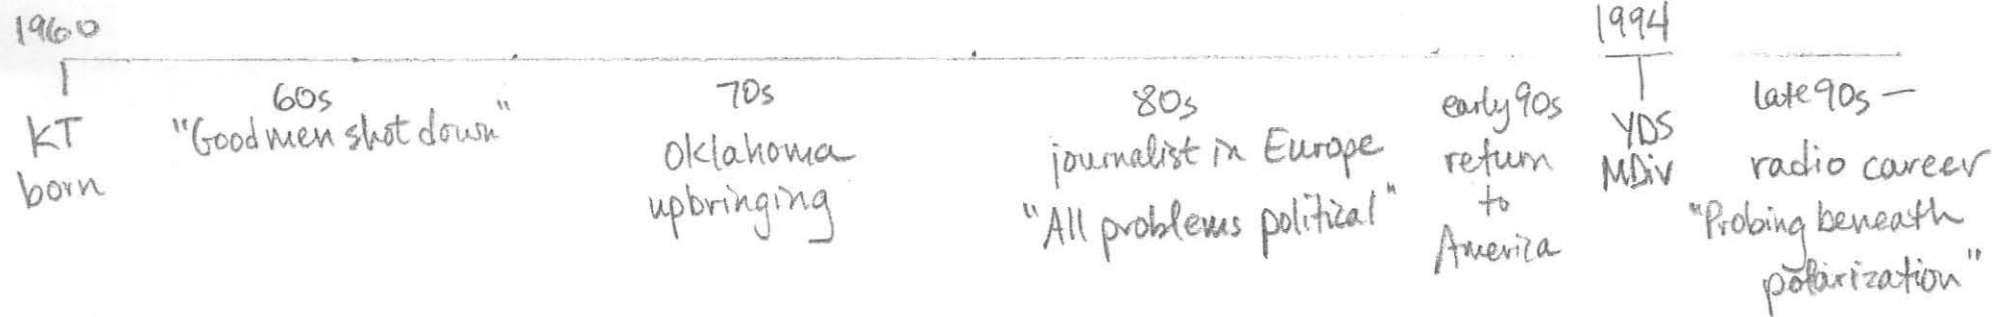 1960
KT
born
60s
"Good men shot down"
70s
Oklahoma
upbringing
80s
journalist in Europe
"All problems political"
early 90s
return
to
America
1994
YDS
MDiV
late 90s —
radio career
"Probing beneath
polarization"